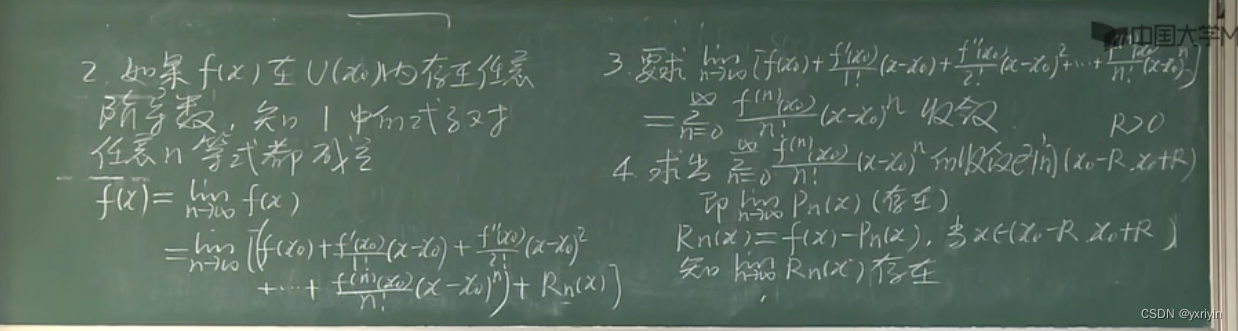 2. 如果 f(x) 在 U(x₀) 内存在任意
阶导数, 知 1 中的式子对
任意 n 等式都成立
f(x) = lim_{n→∞} f(x)
= lim_{n→∞} [(f(x₀) + f'(x₀)/1! (x-x₀) + f''(x₀)/2! (x-x₀)²
+ ··· + f⁽ⁿ⁾(x₀)/n! (x-x₀)ⁿ) + Rn(x)]
3. 要求 lim_{n→∞} [f(x₀) + f'(x₀)/1! (x-x₀) + f''(x₀)/2! (x-x₀)² + ··· + f⁽ⁿ⁾(x₀)/n! (x-x₀)ⁿ]
= ∑_{n=0}^{∞} f⁽ⁿ⁾(x₀)/n! (x-x₀)ⁿ 收敛. R>0
4. 求出 ∑_{n=0}^{∞} f⁽ⁿ⁾(x₀)/n! (x-x₀)ⁿ 的收敛区间 (x₀-R, x₀+R)
即 lim_{n→∞} Pn(x) (存在)
Rn(x) = f(x) - Pn(x), 当 x∈(x₀-R, x₀+R)
知 lim_{n→∞} Rn(x) 存在
中国大学M
CSDN @yxriyin